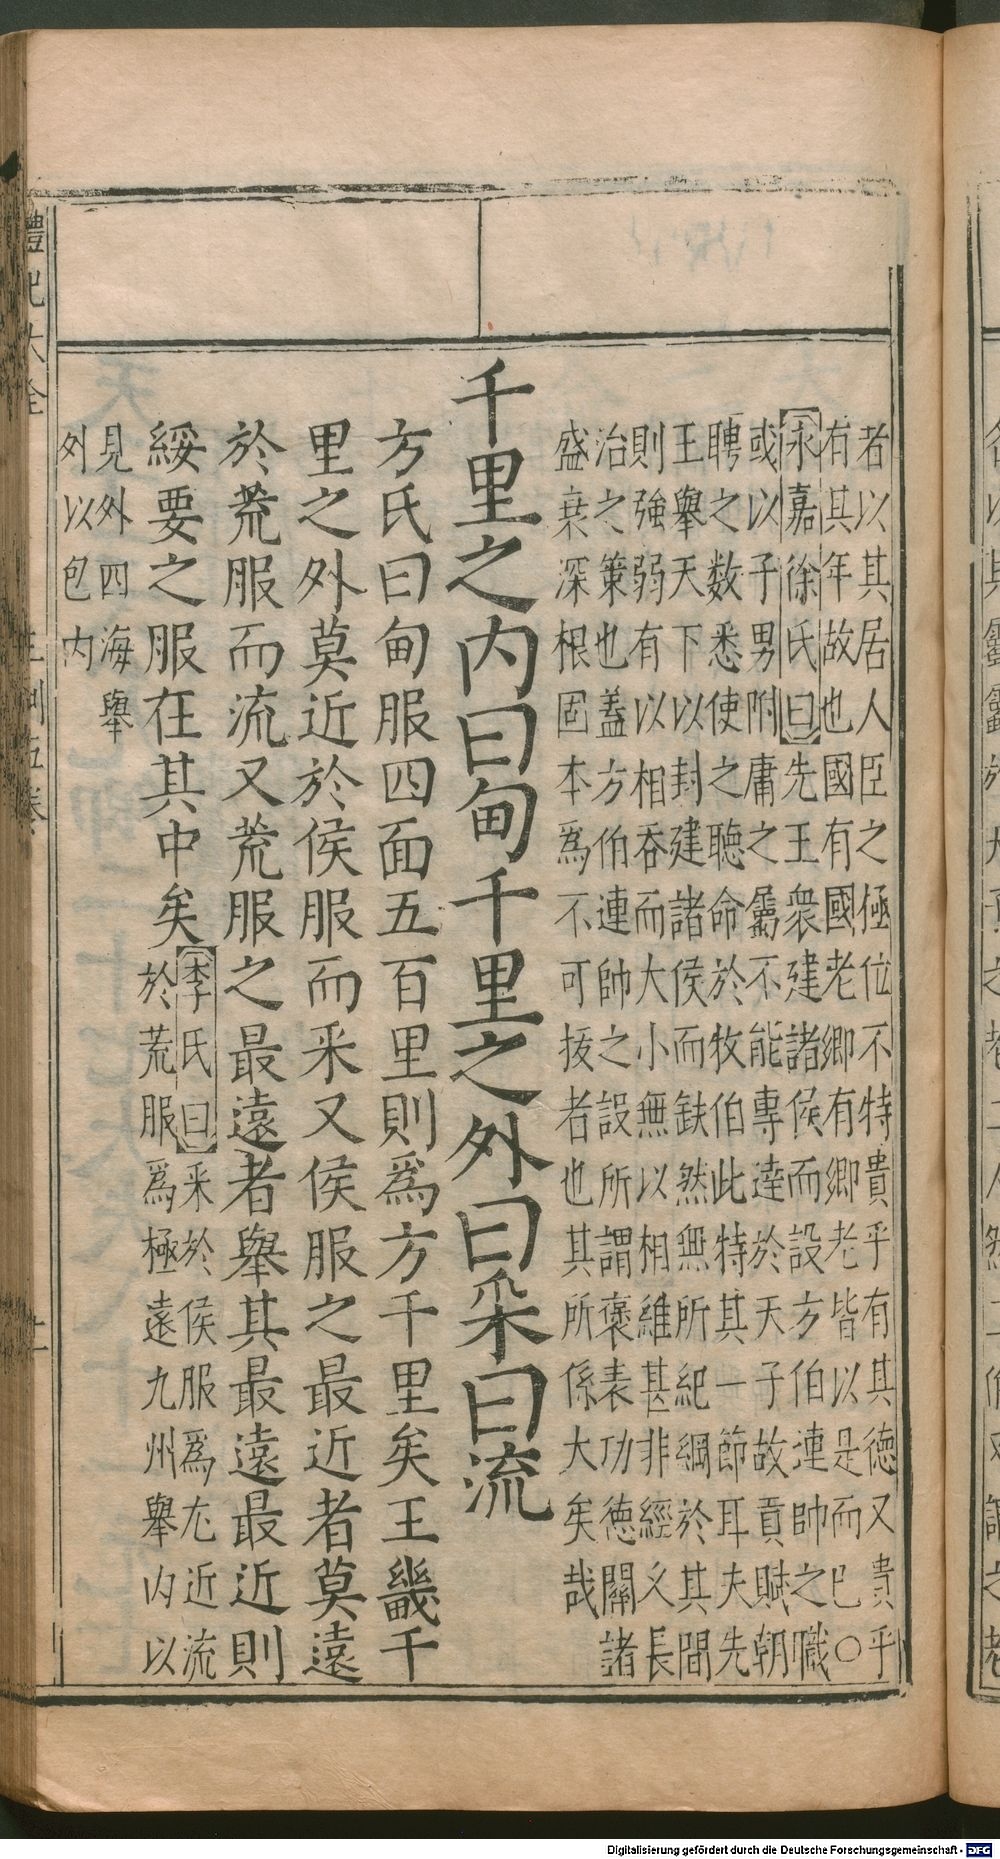 者以其居人臣之極位不特貴乎有其德又貴乎
有其年故也國有國老卿有卿老皆以是而已○
永嘉徐氏曰先王衆建諸侯而設方伯連帥之職
或以子男附庸之屬不能專達於天子故貢賦朝
聘之数悉使之聽命於牧伯此特其一節耳夫先
王舉天下以封建諸侯而缺然無所紀綱於其間
則強弱有以相吞而大小無以相維甚非經乂長
治之策也蓋方伯連帥之設所謂褒表功德關諸
盛衰深根固本爲不可拔者也其所係大矣哉
千里之内曰甸千里之外曰采曰流
方氏曰甸服四面五百里則爲方千里矣王畿千
里之外莫近於侯服而采又侯服之最近者莫遠
於荒服而流又荒服之最遠者舉其最遠最近則
綏要之服在其中矣
李氏曰采於侯服爲尤近流
於荒服爲極遠九州舉内以
見外四海舉
外以包内
禮記大全
王制五卷
Digitalisierung gefördert durch die Deutsche Forschungsgemeinschaft - DFG